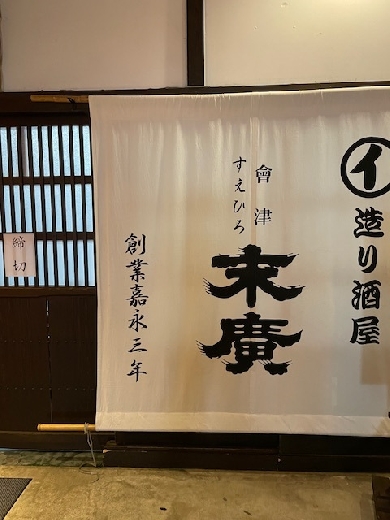 イ
造り酒屋
會津
末廣
すゑひろ
創業嘉永三年
締切